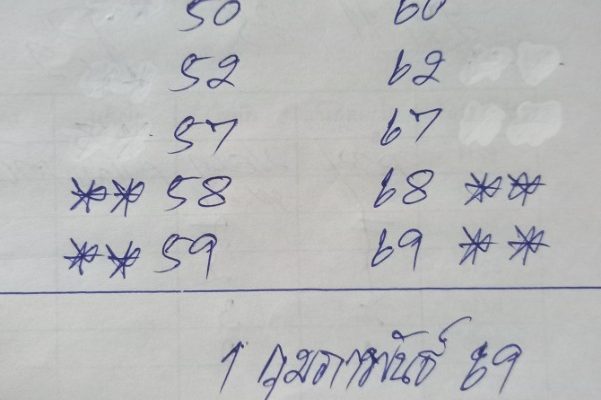 50 60
52 62
57 67
** 58 68 **
** 59 69 **
1 กุมภาพันธ์ 69